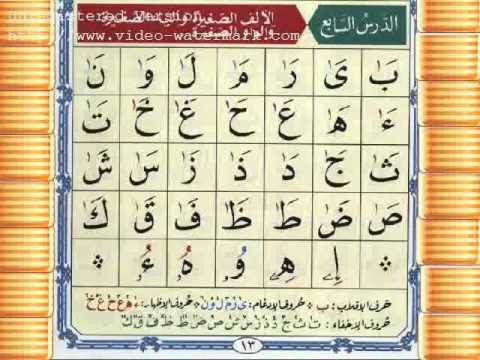 Unregistered Version
http://www.video-watermark.com
الدَّرسُ السَّابِع
الألف الصغيرة والياء الصغيرة
والواو الصغيرة
بٰ یٰ رٰ مٰ لٰ وٰ نٰ
ءٰ هٰ عٰ حٰ غٰ خٰ تٰ
ثٰ جٰ دٰ ذٰ زٰ سٰ شٰ
صٰ ضٰ طٰ ظٰ فٰ قٰ كٰ
* اٖ هٖ وٗ هٗ ءٗ *
حرف الإقلاب: ب * حروف الإدغام: ی ر م ل و ن * حروف الإظهار: ء ه ع ح غ خ
حروف الإخفاء: ت ث ج د ذ ز س ش ص ض ط ظ ف ق ك
١٣